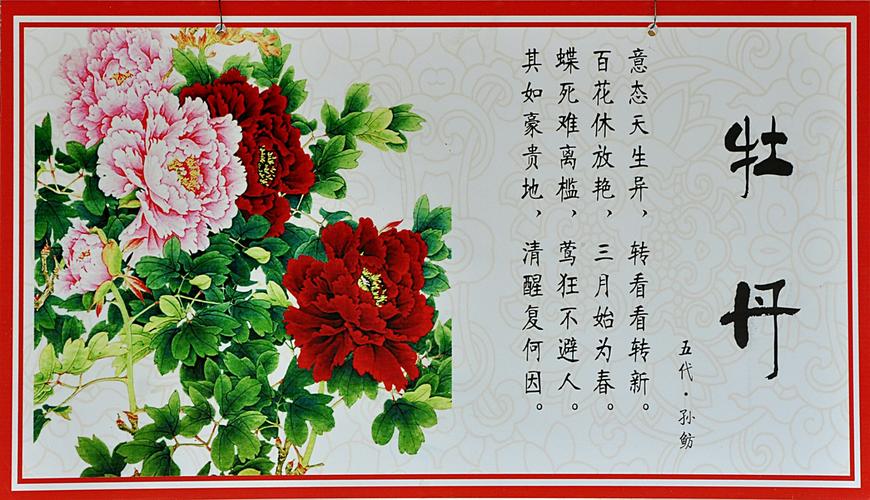 牡丹
五代·孙鲂
意态天生异，转看看转新。
百花休放艳，三月始为春。
蝶死难离槛，莺狂不避人。
其如豪贵地，清醒复何因。